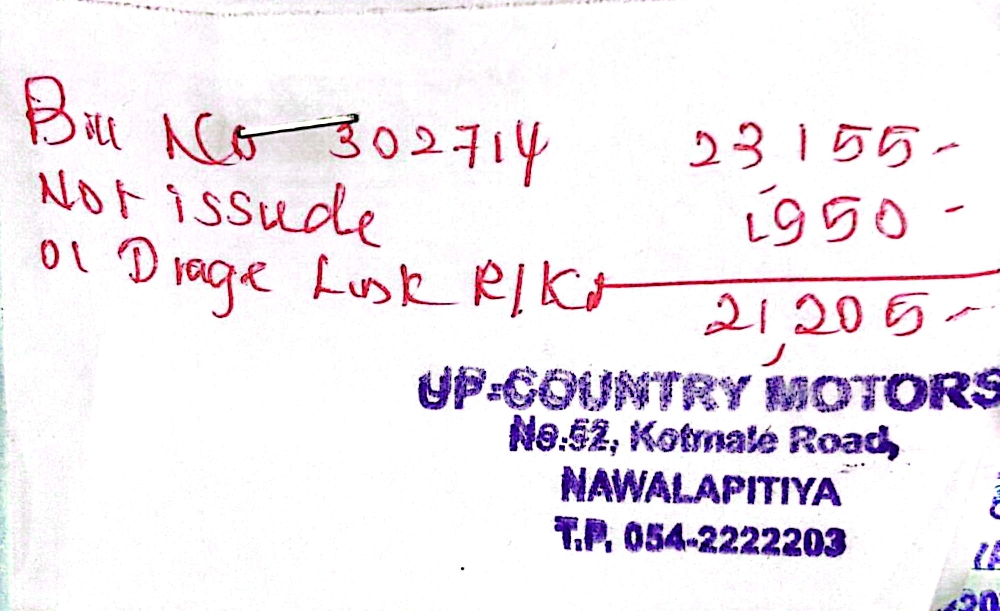 Bill No 302714 23155-
Not issude 1950-
01 Drage Lusk R/Kit
21,205-
UP-COUNTRY MOTORS
No.52, Kotmale Road,
NAWALAPITIYA
T.P. 054-2222203